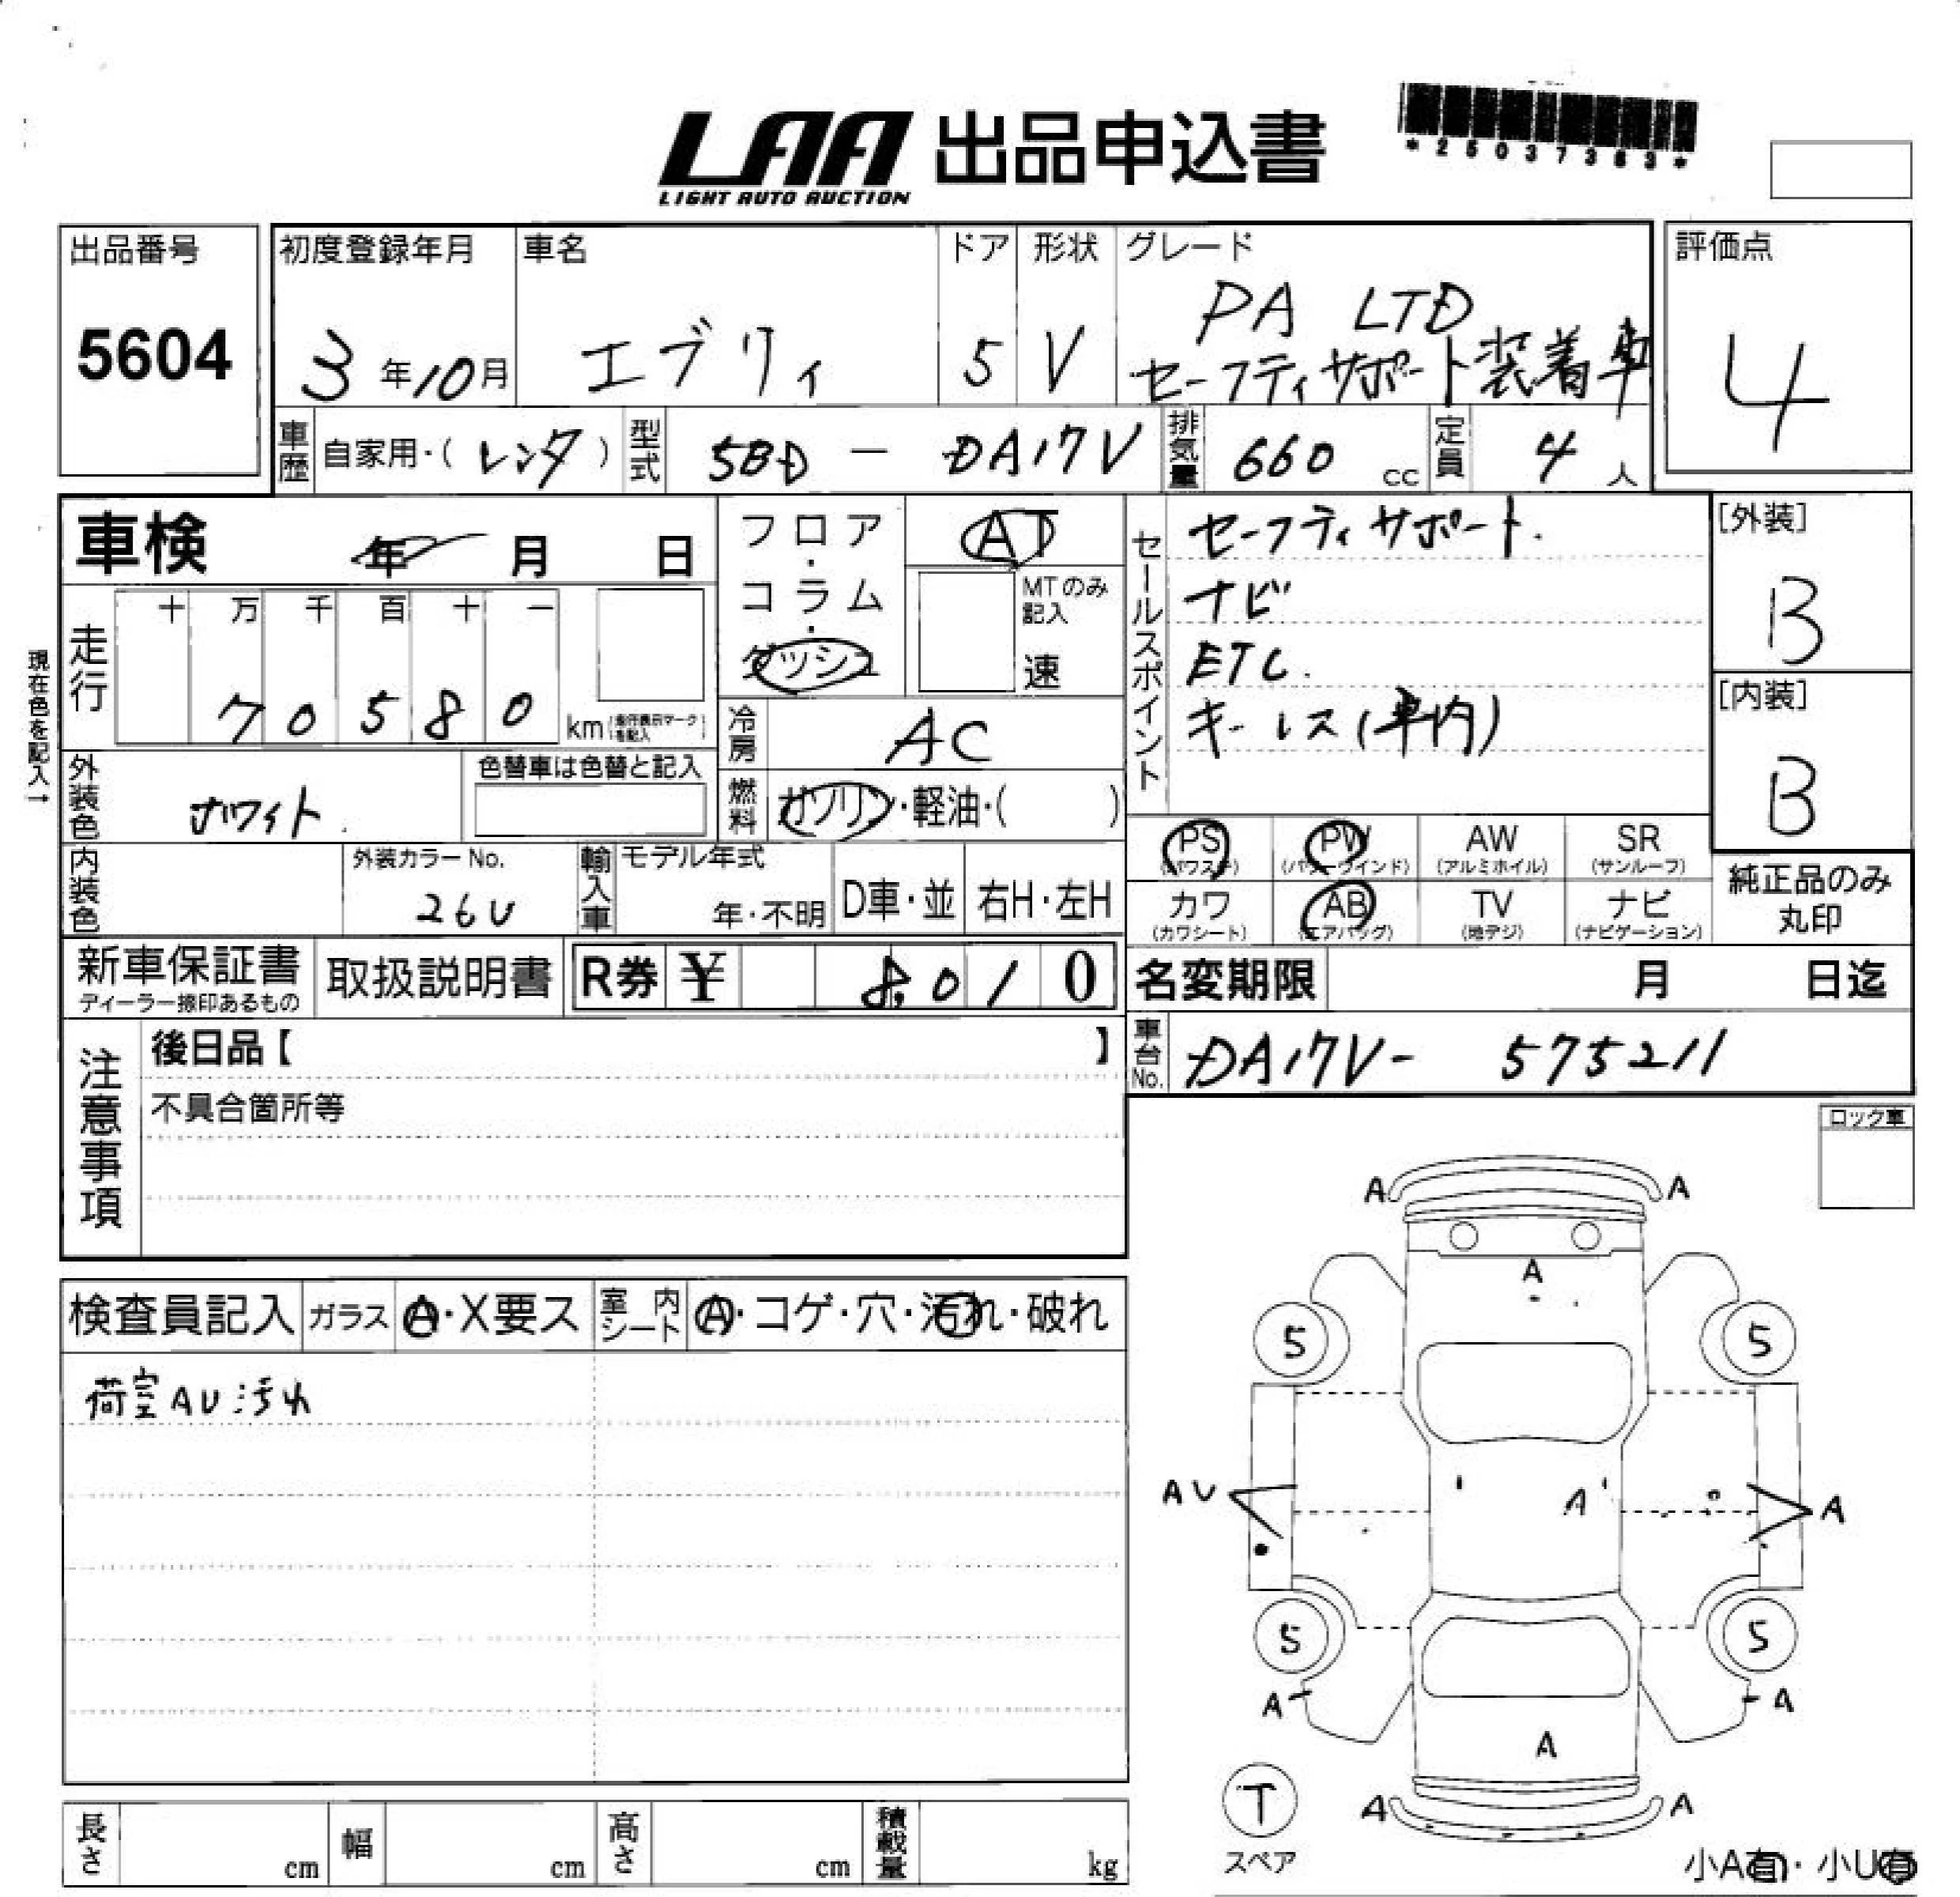 LAA 出品申込書
LIGHT AUTO AUCTION
*25037383*
出品番号
5604
初度登録年月
3年10月
車名
エブリィ
ドア
5
形状
V
グレード
PA LTD
セーフティサポート装着車
評価点
4
車歴 自家用・(レンタ)
型式 5BD - DA17V
排気量 660 cc
定員 4人
車検 年 月 日
走行 十 万 千 百 十 一
70580 km
現在色を記入→
フロア・コラム・ダッシュ
AT
MTのみ記入
速
冷房 AC
燃料 ガソリン・軽油・( )
外装色 ホワイト
色替車は色替と記入
内装色
外装カラーNo.
26U
輸入車 モデル年式
年・不明
D車・並
右H・左H
セールスポイント
セーフティサポート.
ナビ
ETC.
キーレス(車内)
[外装]
B
[内装]
B
PS (パワステ)
PW (パワーウインド)
AW (アルミホイル)
SR (サンルーフ)
カワ (カワシート)
AB (エアバッグ)
TV (地デジ)
ナビ (ナビゲーション)
純正品のみ
丸印
新車保証書
ディーラー捺印あるもの
取扱説明書
R券 ¥ 8,010
名変期限 月 日迄
車台No. DA17V- 575211
注意事項
後日品【 】
不具合箇所等
ロック車
検査員記入 ガラス A・X要ス 室内シート A・コゲ・穴・汚れ・破れ
荷室AU汚れ
A A
A
5 5
AU A A
5 5
A A
A
T
スペア
A A
小A有・小U有
長さ cm 幅 cm 高さ cm 積載量 kg